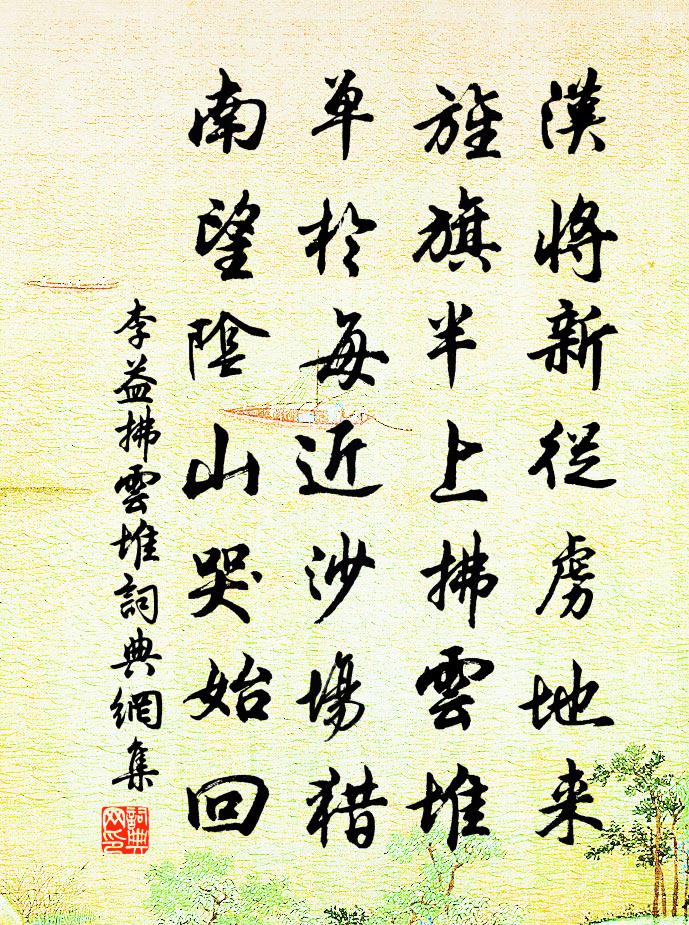 漢將新從虜地来
旌旗半上拂雲堆
单於每近沙場猎
南望陰山哭始回
李益拂雲堆詞典網集
詞典网印